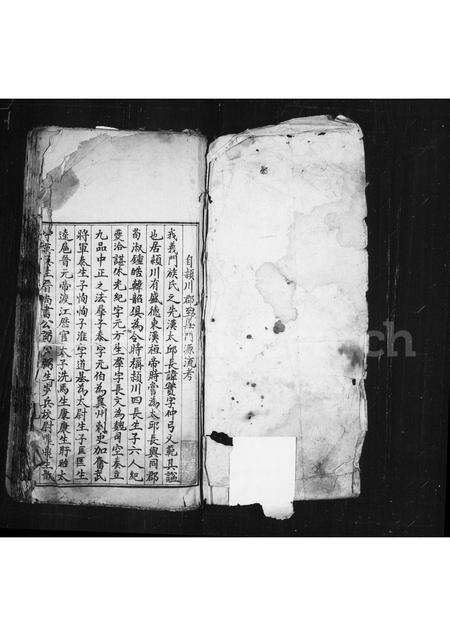 自潁川郡義門源流考
我義門族氏之先漢太邱長諱寔字仲弓文範其諡
也居潁川有盛德東漢桓帝時嘗為太邱長與同郡
荀淑鍾皓韓韶俱為令時稱潁川四長生子六人紀
夔洽諶休光紀字元方生羣字長文為魏司空奏立
九品中正之法羣子泰字元伯為州刺史加奮武
將軍泰生子恂恂子淮字道基為太尉生子匡匡生
達扈晉元帝渡江歷官太子洗馬生康康生盱盱太
公弼弼生校尉生